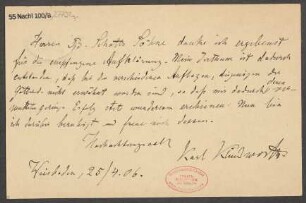 55 Nachl 100/B
Herren B. Schott's Söhne danke ich ergebenst
für die empfangene Aufklärung. Mein Irrthum ist dadurch
entstanden, daß bei die verschiedenen Auflagen, diejenigen des
nicht erwähnt worden sind, so daß mir dadurch der
Erfolg etwas wundersam erschienen. Nun bin
ich darüber beruhigt und freue mich dessen.
Hochachtungsvoll
Karl Klindworth
Wiesbaden, 25/4.06.